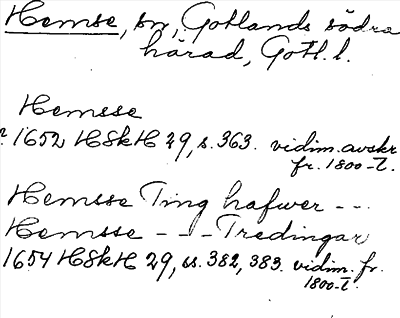 Hemse, sn, Gotlands södra
härad, Gotl. l.
Hemsse
1652 HSkH 29, s. 363. vidim. avskr
fr. 1800-t.
Hemsse Ting hafwer - - -
Hemsse - - - Tredingar
1654 HSkH 29, ss. 382, 383. vidim. fr.
1800-t.